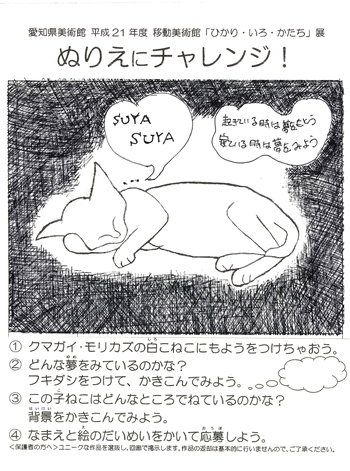 愛知県美術館 平成21年度 移動美術館「ひかり・いろ・かたち」展
ぬりえにチャレンジ！
SUYA
SUYA
起きている時は夢をもとう
寝ている時は夢をみよう
① クマガイ・モリカズの白こねこにもようをつけちゃおう。
② どんな夢をみているのかな？
フキダシをつけて、かきこんでみよう。
③ この子ねこはどんなところでねているのかな？
背景をかきこんでみよう。
④ なまえと絵のだいめいをかいて応募しよう。
＜保護者の方へ＞ユニークな作品を選抜し、回廊で掲示します。作品の返却は基本的に行いませんので、ご了承ください。